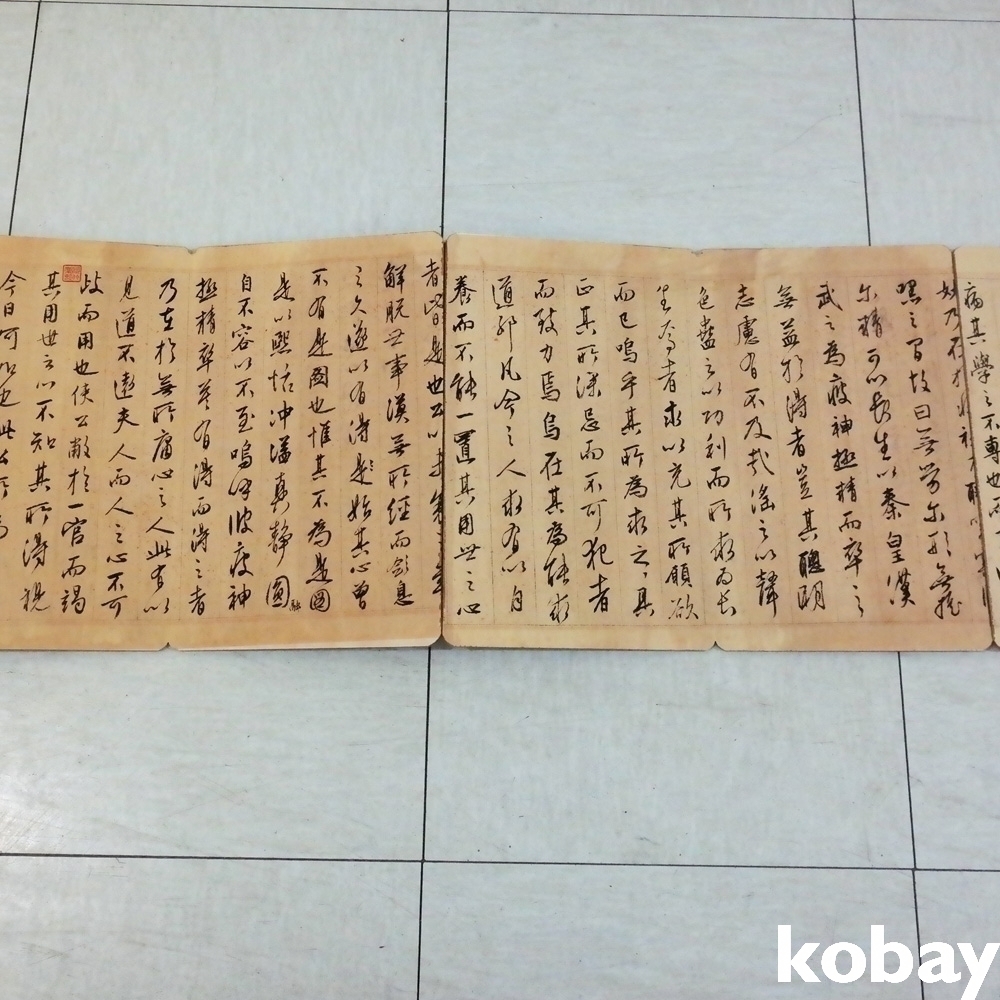 病其學之不專也而
妙乃在於
嘿之間故曰無勞尔形無搖
尔精可以長生以秦皇漢
武之為疲神極精而卒之
無益於得者豈其聰明
志慮有不及哉滛之以聲
色蠱之以功利而所求而長
生焉者求以充其所願欲
而已嗚乎其所為求之其
正其所深忌而不可犯者
而致力焉烏在其為能求
道邪凡今之人孰有以自
養而不能一置其用世之心
者皆是也公以
解脫世事漠無所經而斂息
之久遂以有得是始其心曾
不有是圖也惟其不為是圖
是以熙恬沖漠真靜圓融
自不容以不至嗚呼彼疲神
極精卒莫有得而得之者
乃在於無所庸心之人此有以
見道不遠夫人而人之心不可
歧而用也使公敝於一官而竭
其用世之心不知其所得視
今日何如也此公所為
kobay